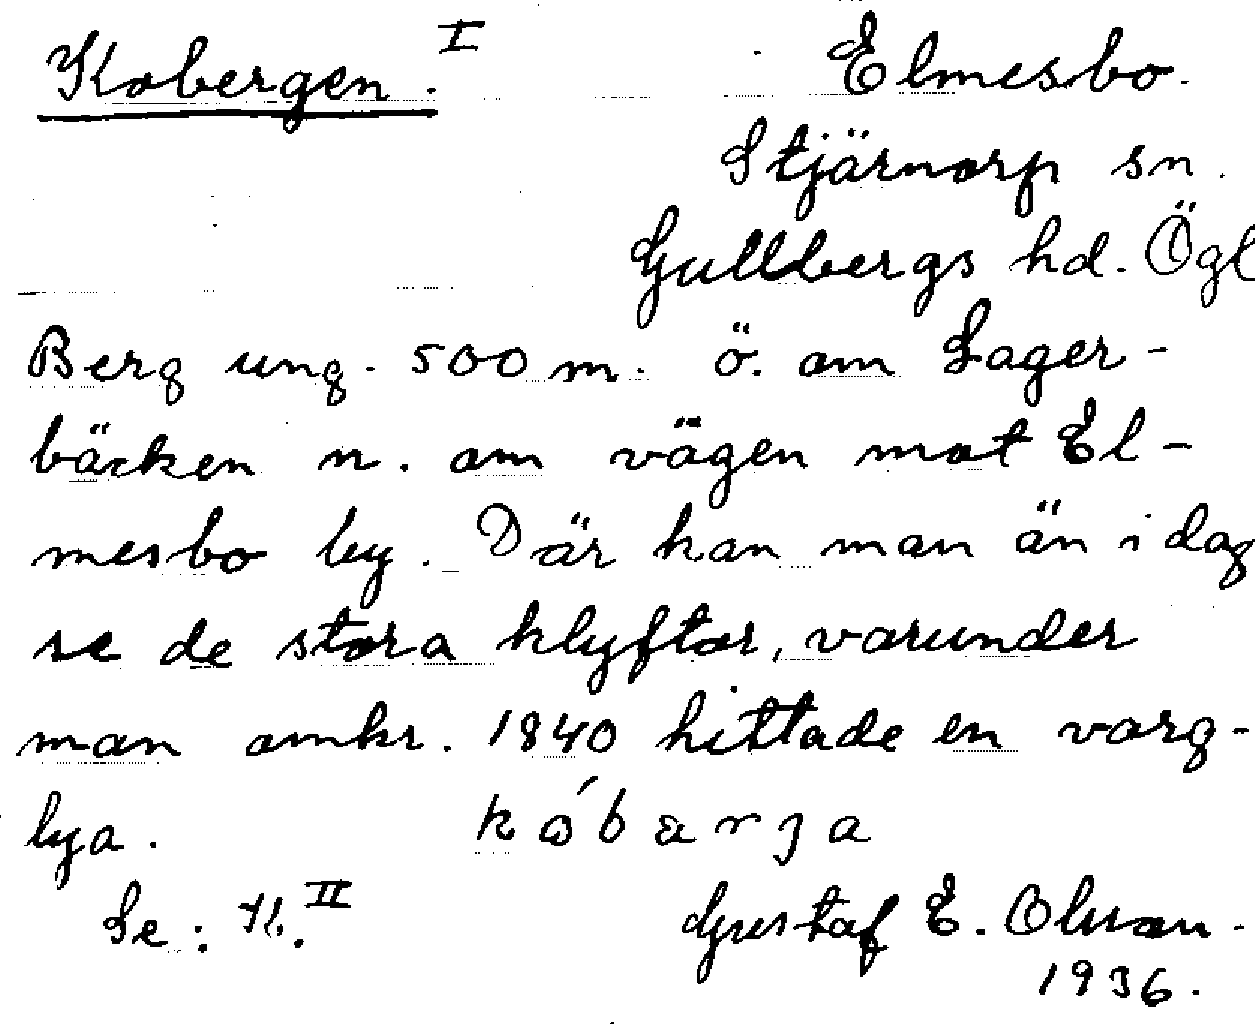 Kobergen. I Elmesbo.
Stjärnorp sn.
Gullbergs hd. Ögl
Berg ung. 500 m. ö. om Lager-
bäcken n. om vägen mot El-
mesbo by. Där kan man än i dag
se de stora klyftor, varunder
man omkr. 1840 hittade en varg-
lya. kóbærja
Se: K. II Gustaf E. Olsson.
1936.